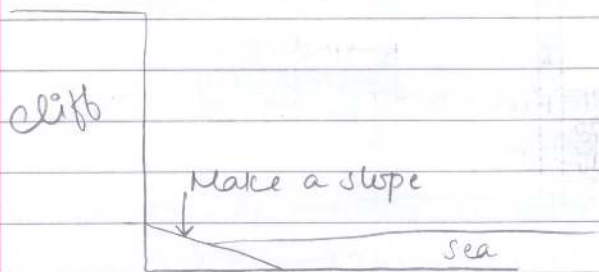 cliff
Make a slope
sea